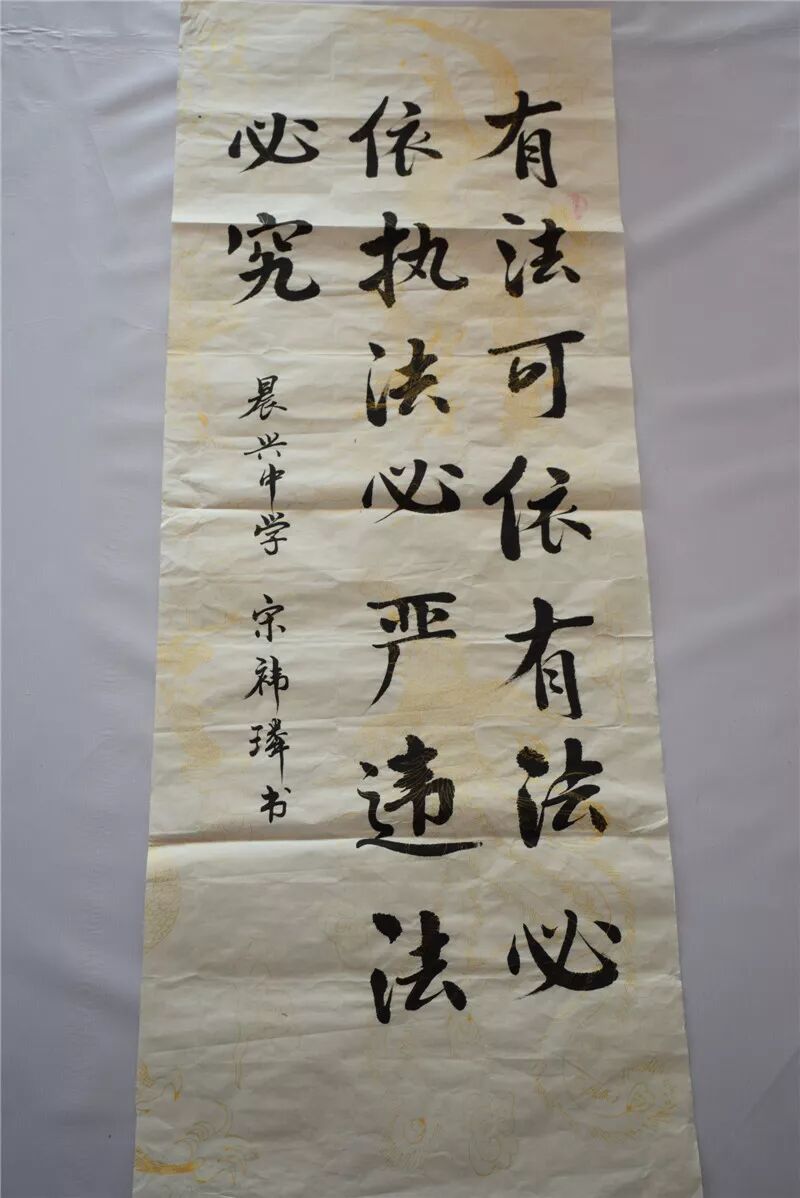 有法可依有法必
依执法必严违法
必究
晨兴中学 宋祎璘书